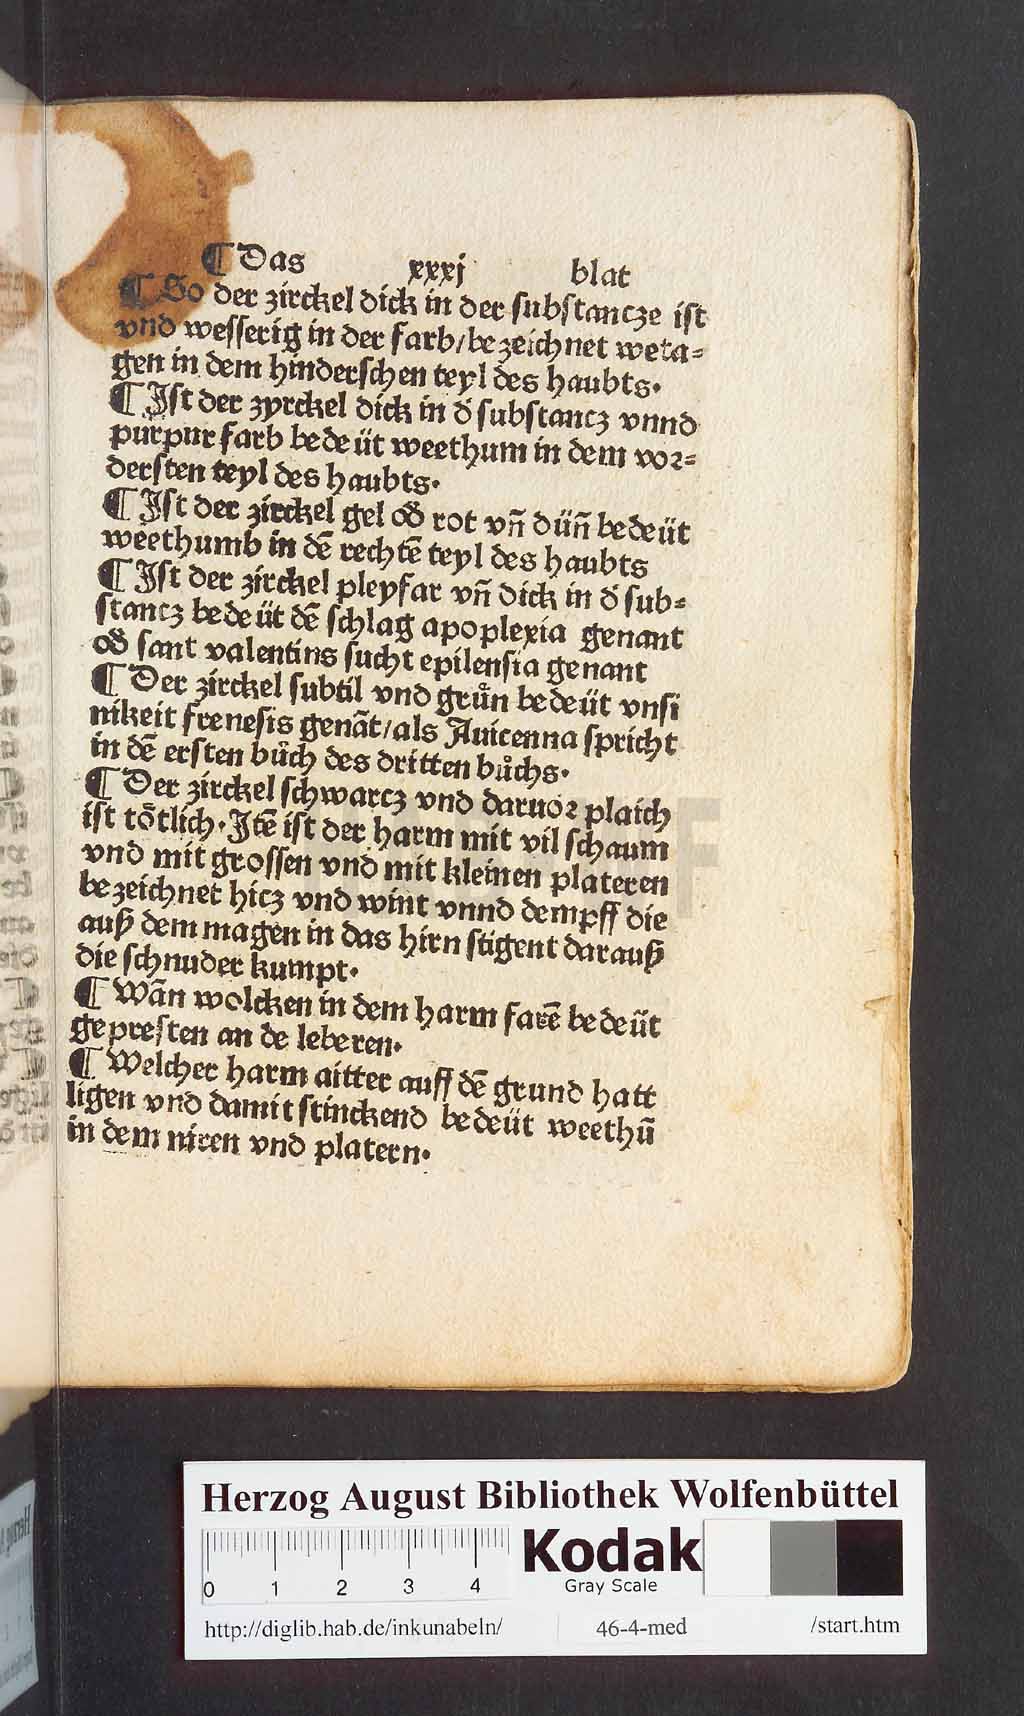 ¶ Das xxxj blat
¶ So der zirckel dick in der substancze ist
vnd wesserig in der farb/bezeichnet weta⸗
gen in dem hinderschen teyl des haubts.
¶ Ist der zyrckel dick in d̕ substancz vnnd
purpur farb bedeüt weethum in dem vor⸗
dersten teyl des haubts.
¶ Ist der zirckel gel od̕ rot vn̄ dün̄ bedeüt
weethumb in dē rechtē teyl des haubts
¶ Ist der zirckel pleyfar vn̄ dick in d̕ sub⸗
stancz bedeüt dē schlag apoplexia genant
od̕ sant valentins sucht epilensia genant
¶ Der zirckel subtil vnd grůn bedeüt vnsi
nikeit frenesis genāt/als Auicenna spricht
in dē ersten bůch des dritten bůchs.
¶ Der zirckel schwarcz vnd daruor plaich
ist tötlich. Itē ist der harm mit vil schaum
vnd mit grossen vnd mit kleinen plateren
bezeichnet hicz vnd wint vnnd dempff die
auß dem magen in das hirn stigent darauß
die schnuder kumpt.
¶ Wān wolcken in dem harm farē bedeüt
gepresten an de leberen.
¶ Welcher harm aitter auff dē grund hatt
ligen vnd damit stinckend bedeüt weethū
in dem niren vnd platern.
Herzog August Bibliothek Wolfenbüttel
0 1 2 3 4
Kodak
Gray Scale
http://diglib.hab.de/inkunabeln/ 46-4-med /start.htm